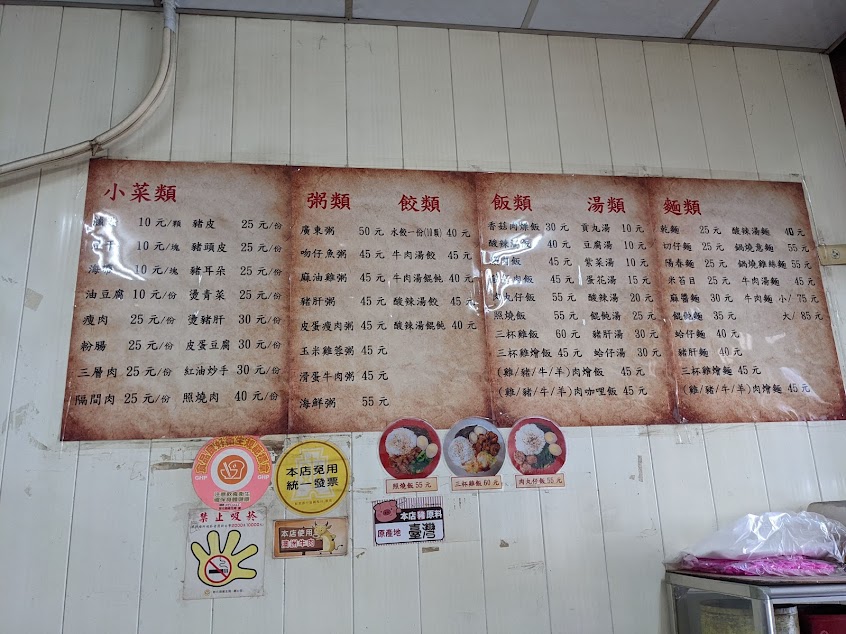 小菜類
10元/顆 豬皮 25元/份
10元/塊 豬頭皮 25元/份
海 10元/塊 豬耳朵 25元/份
油豆腐 10元/份 燙青菜 25元/份
瘦肉 25元/份 燙豬肝 30元/份
粉腸 25元/份 皮蛋豆腐 30元/份
三層肉 25元/份 紅油炒手 30元/份
隔間肉 25元/份 照燒肉 40元/份
粥類 餃類
廣東粥 50元 水餃一份(10顆) 40元
吻仔魚粥 45元 牛肉湯餃 40元
麻油雞粥 45元 牛肉湯餛飩 40元
豬肝粥 45元 酸辣湯餃 45元
皮蛋瘦肉粥 45元 酸辣湯餛飩 40元
玉米雞蓉粥 45元
滑蛋牛肉粥 45元
海鮮粥 55元
飯類 湯類
香菇肉燥飯 30元 貢丸湯 10元
酸辣燴飯 40元 豆腐湯 10元
肉飯 45元 紫菜湯 10元
肉飯 45元 蛋花湯 15元
肉丸仔飯 55元 酸辣湯 20元
照燒飯 55元 餛飩湯 25元
三杯雞飯 60元 豬肝湯 30元
三杯雞燴飯 45元 蛤仔湯 30元
(雞/豬/牛/羊)肉燴飯 45元
(雞/豬/牛/羊)肉咖哩飯 45元
麵類
乾麵 25元 酸辣湯麵 40元
切仔麵 25元 鍋燒意麵 55元
陽春麵 25元 鍋燒雞絲麵 55元
米苔目 25元 牛肉湯麵 45元
麻醬麵 30元 牛肉麵 小/75元
餛飩麵 35元 大/85元
蛤仔麵 40元
豬肝麵 40元
三杯雞麵 45元
(雞/豬/牛/羊)肉燴麵 45元
GHP GHP
本店免用
統一發票
照燒飯 55元
三杯雞飯 60元
肉丸仔飯 55元
禁止吸菸
本店使用
澳洲牛肉
本店豬原料
原產地 臺灣